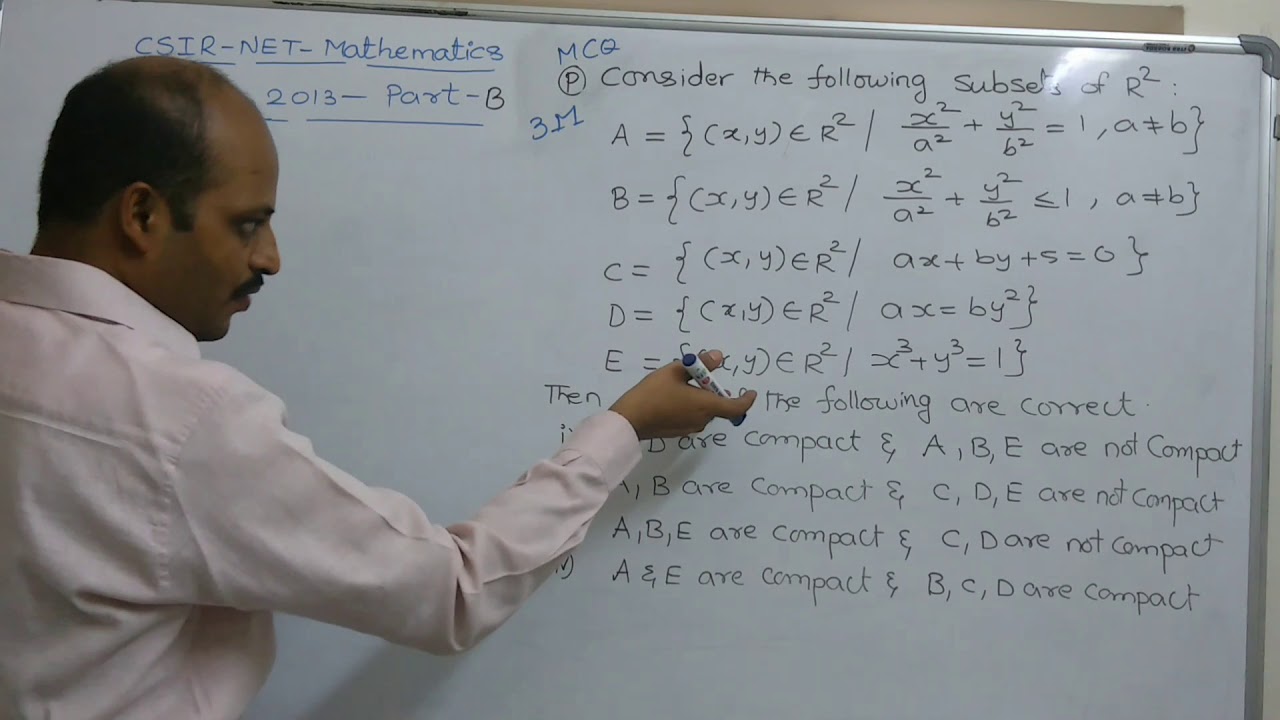 CSIR-NET-Mathematics
2013- Part-B
MCQ
Ⓟ Consider the following subsets of R² :
3M
A = {(x,y) ∈ R² | x²/a² + y²/b² = 1 , a ≠ b}
B = {(x,y) ∈ R² | x²/a² + y²/b² ≤ 1 , a ≠ b}
C = {(x,y) ∈ R² | ax + by + 5 = 0 }
D = {(x,y) ∈ R² | ax = by²}
E = {(x,y) ∈ R² | x³ + y³ = 1}
Then the following are correct.
D are compact & A, B, E are not Compact
A, B are compact & C, D, E are not compact
A, B, E are compact & C, D are not compact
A & E are compact & B, C, D are compact